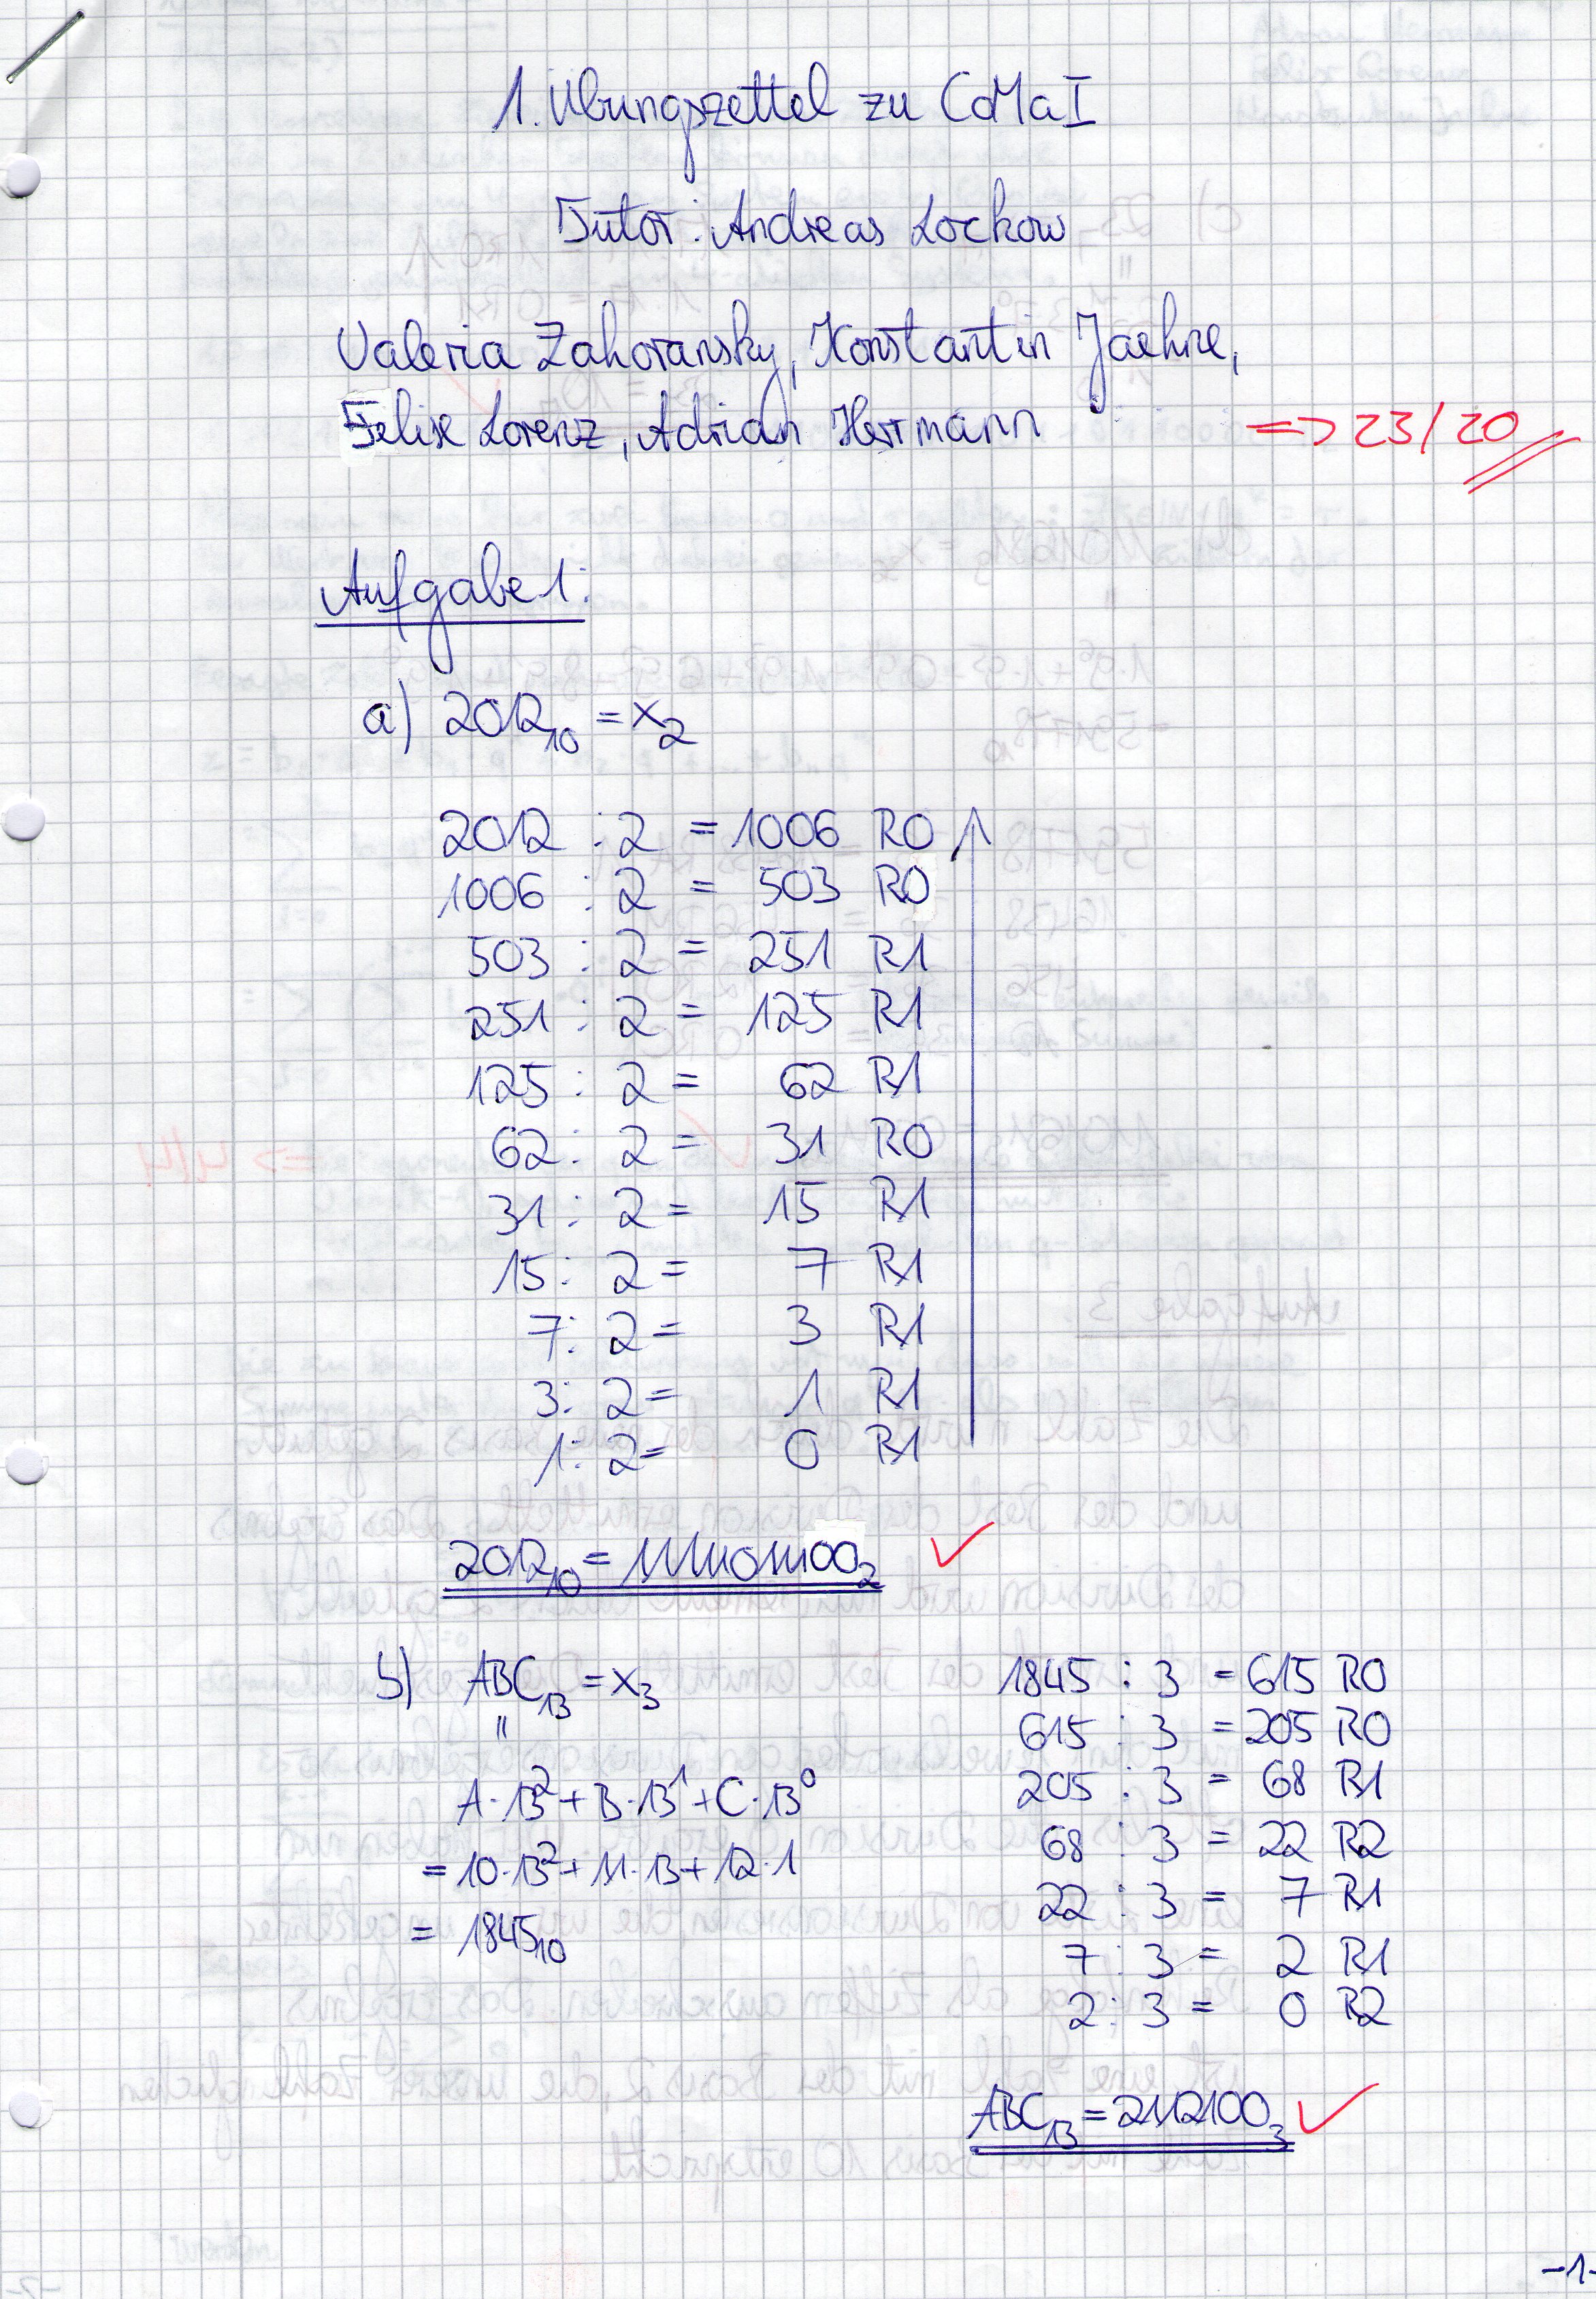 1. Übungszettel zu CoMa I
Tutor: Andreas Lockow
Valeria Zahoransky, Konstantin Jaehne,
Felix Lorenz, Adrian Herrmann
=> 23/20
Aufgabe 1:
a) 2012₁₀ = x₂
2012 : 2 = 1006 R0
1006 : 2 = 503 R0
503 : 2 = 251 R1
251 : 2 = 125 R1
125 : 2 = 62 R1
62 : 2 = 31 R0
31 : 2 = 15 R1
15 : 2 = 7 R1
7 : 2 = 3 R1
3 : 2 = 1 R1
1 : 2 = 0 R1
2012₁₀ = 11111011100₂ ✓
b) ABC₁₃ = x₃
"
A·13²+B·13¹+C·13⁰
= 10·13²+11·13+12·1
= 1845₁₀
1845 : 3 = 615 R0
615 : 3 = 205 R0
205 : 3 = 68 R1
68 : 3 = 22 R2
22 : 3 = 7 R1
7 : 3 = 2 R1
2 : 3 = 0 R2
ABC₁₃ = 2112100₃ ✓
-1-